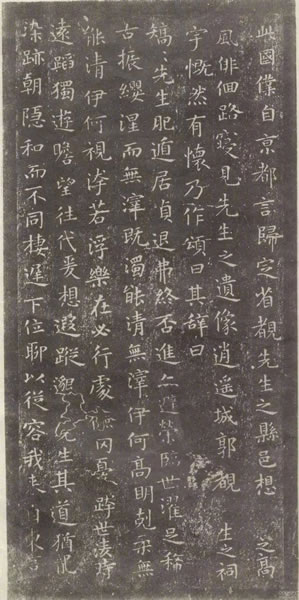 此國僕自京都言歸定省覩先生之縣邑想之高
風徘徊路寢見先生之遺像逍遥城郭覩生之祠
宇慨然有懷乃作頌曰其辭曰
矯先生肥遁居貞退弗終否進亦避榮臨世濯足稀
古振纓涅而無滓既濁能清無滓伊何高明剋柔無
能清伊何視洿若浮樂在必行處儉罔憂跨世凌時
遠蹈獨遊瞻望往代爰想遐蹤邈先生其道猶龍
染跡朝隱和而不同棲遲下位聊以從容我来自東言